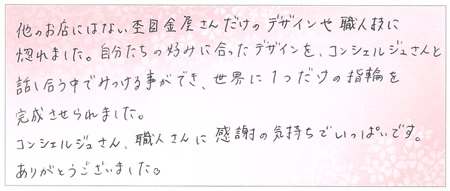 他のお店にはない杢目金屋さんだけのデザインや職人技に
惚れました。自分たちの好みに合ったデザインを、コンシェルジュさんと
話し合う中でみつける事ができ、世界に1つだけの指輪を
完成させられました。
コンシェルジュさん、職人さんに感謝の気持ちでいっぱいです。
ありがとうございました。